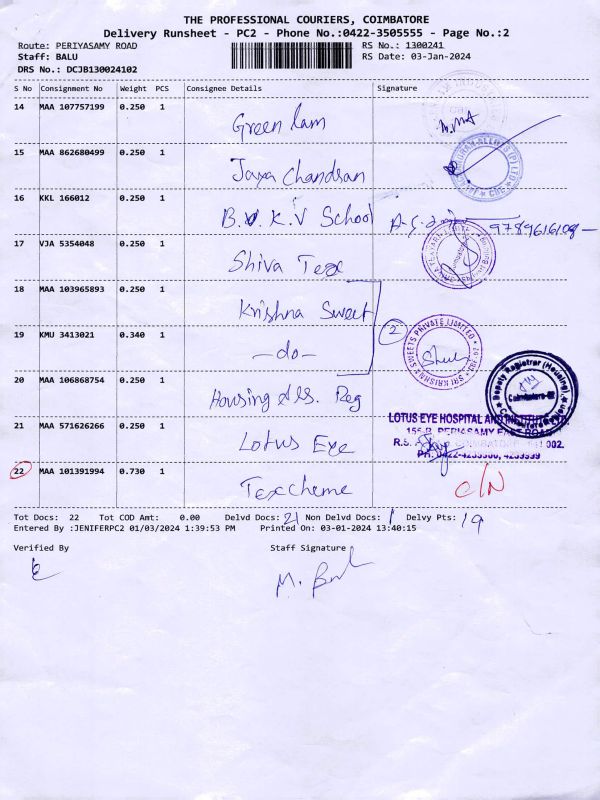 THE PROFESSIONAL COURIERS, COIMBATORE
Delivery Runsheet - PC2 - Phone No.:0422-3505555 - Page No.:2
Route: PERIYASAMY ROAD
RS No.: 1300241
Staff: BALU
RS Date: 03-Jan-2024
DRS No.: DCJB130024102
S No Consignment No Weight PCS Consignee Details Signature
14 MAA 107757199 0.250 1 Green lam
15 MAA 862680499 0.250 1 Jaya Chandran
16 KKL 166012 0.250 1 B.V.K.V School 9789616108
17 VJA 5354048 0.250 1 Shiva Tex
18 MAA 103965893 0.250 1 Krishna Sweet
2
SRI KRISHNA SWEETS PRIVATE LIMITED
19 KMU 3413021 0.340 1 -do-
20 MAA 106868754 0.250 1 Housing Reg
Deputy Registrar (Housing)
Coimbatore
Coimbatore Region
21 MAA 571626266 0.250 1 Lotus Eye
LOTUS EYE HOSPITAL AND INSTITUTE LTD
PERIYASAMY EAST ROAD
R.S. COIMBATORE 002.
22 MAA 101391994 0.730 1 Texcheme C/N
Tot Docs: 22 Tot COD Amt: 0.00 Delvd Docs: 21 Non Delvd Docs: 1 Delvy Pts: 19
Entered By :JENIFERPC2 01/03/2024 1:39:53 PM Printed On: 03-01-2024 13:40:15
Verified By Staff Signature